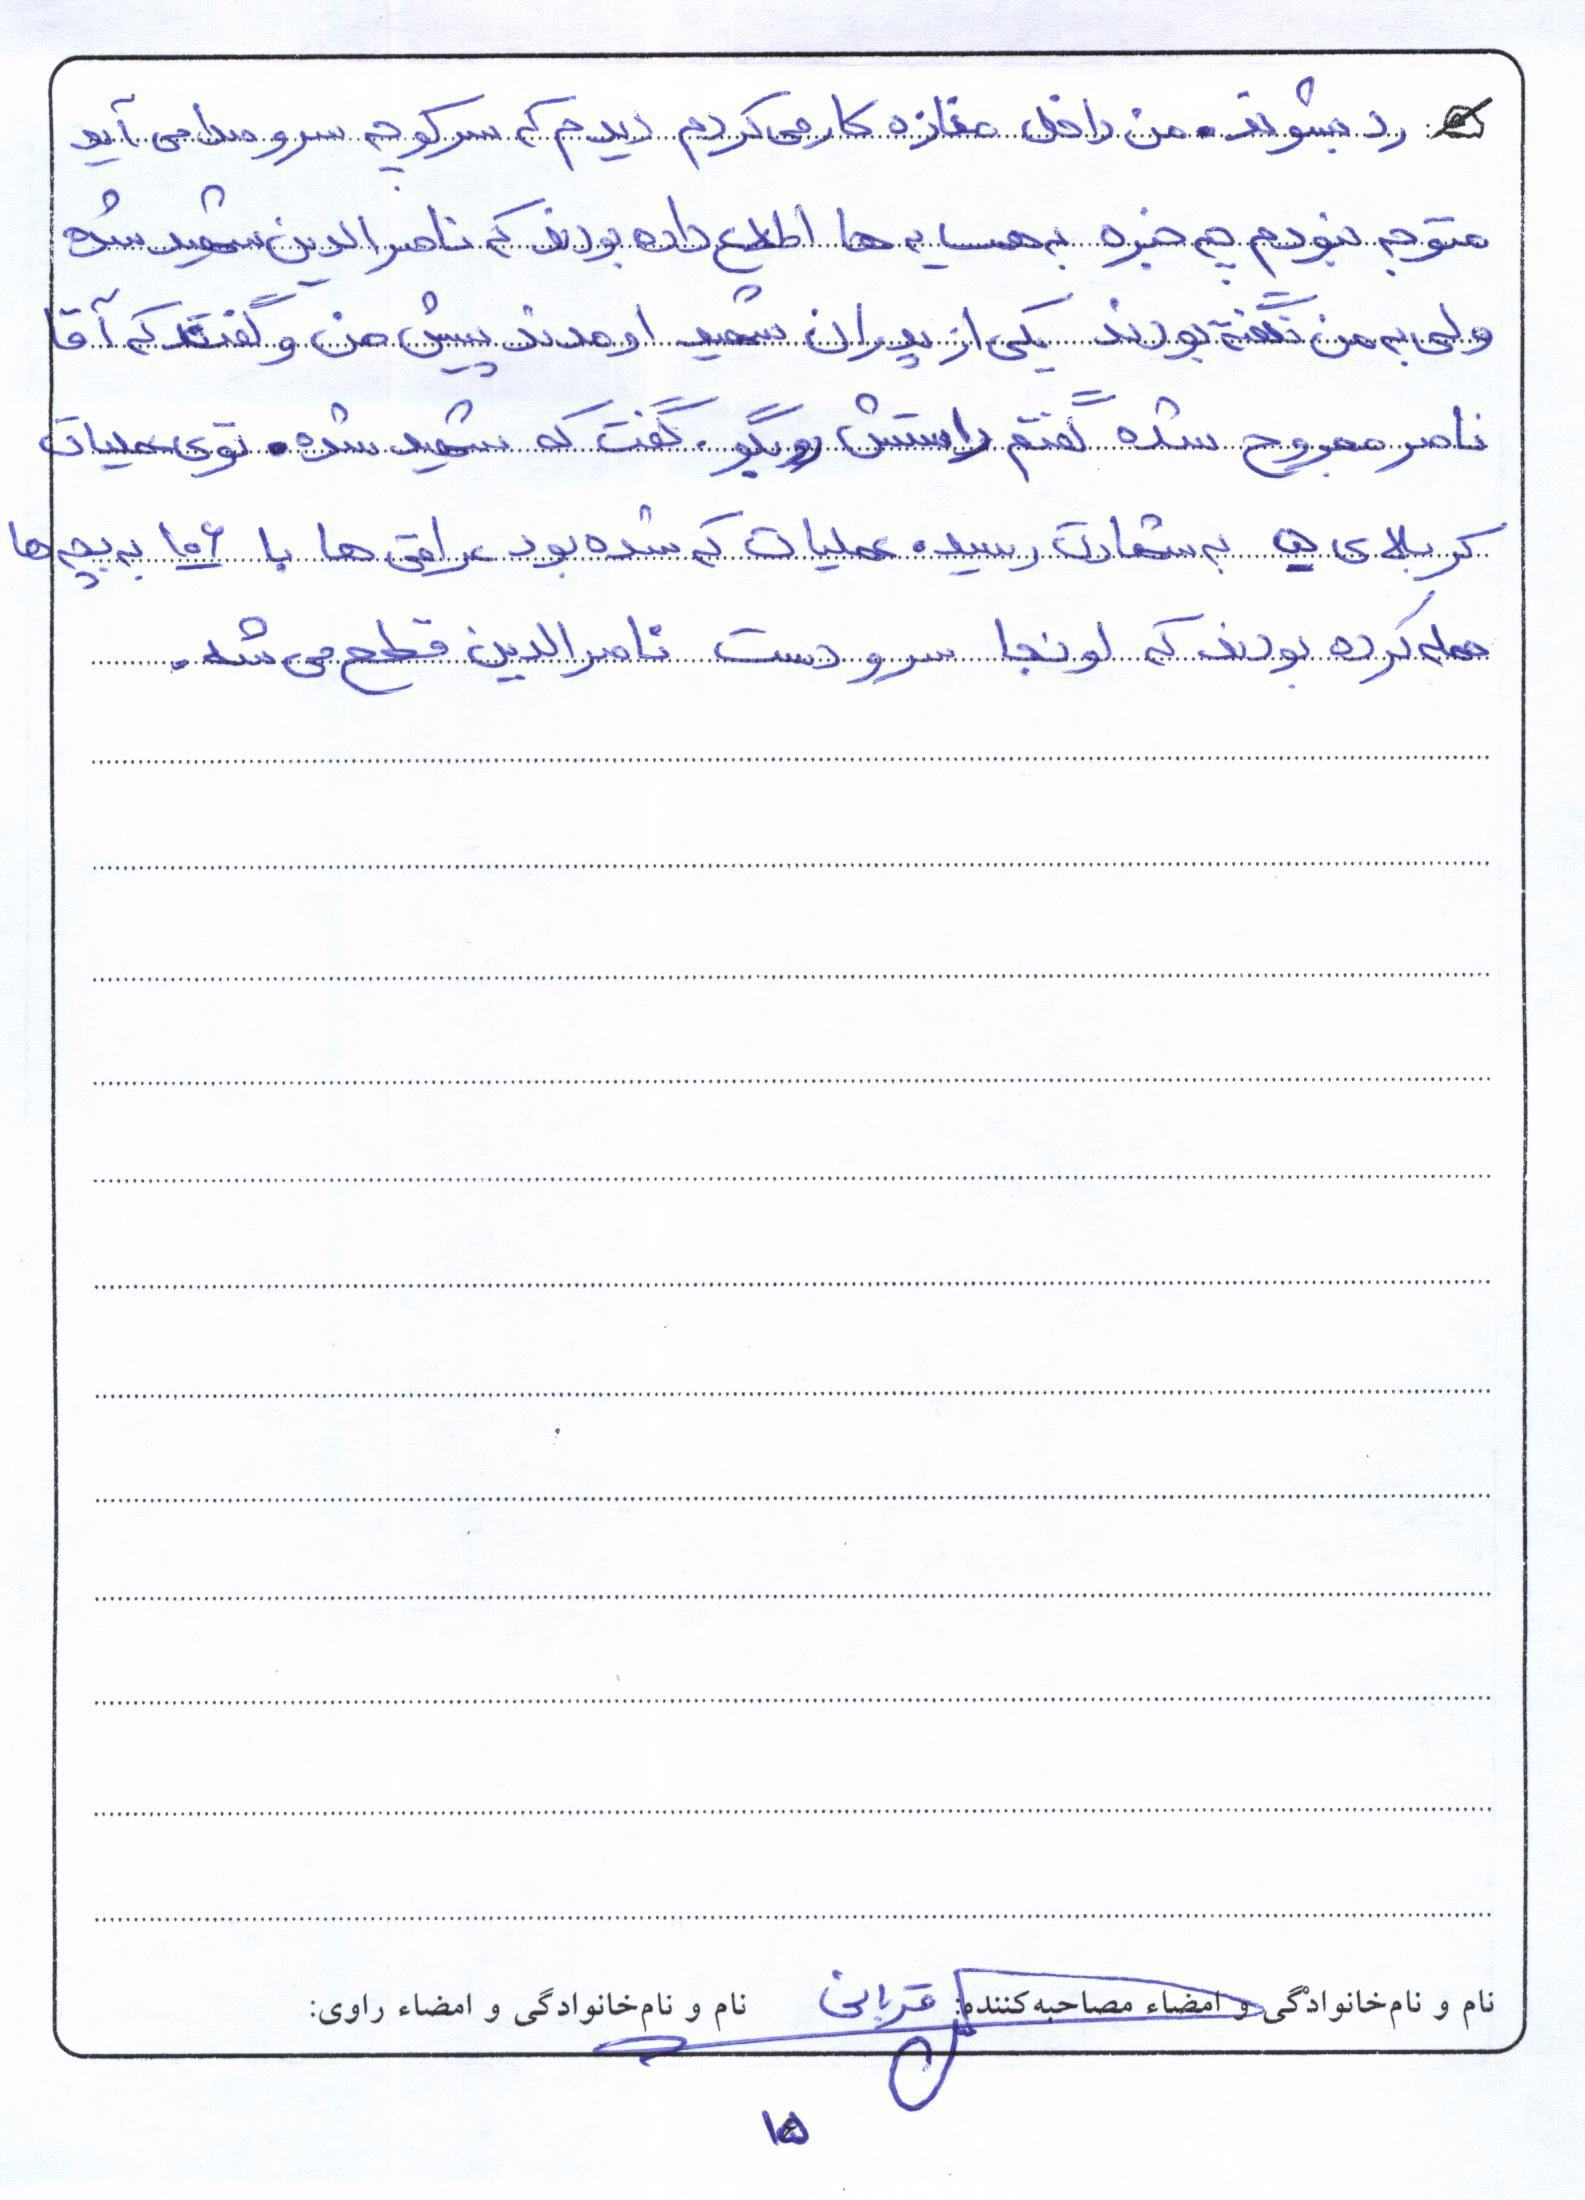 رد بشوند. من داخل مغازه کار می‌کردم دیدم که سر کوچه سر و صدا می آید
متوجه نبودم چه خبره به همسایه ها اطلاع داده بودند که ناصرالدین شهید شده
ولی به من نگفته بودند یکی از پدران شهید اومدند پیش من و گفتند که آقا
ناصر مجروح شده گفتم راستش رو بگو. گفت که شهید شده. توی عملیات
کربلای ۵ به شهادت رسیده عملیات که شده بود عراقی ها با ۱۰۶ به بچه ها
حمله کرده بودند که اونجا سر و دست ناصرالدین قطع می شه.
نام و نام‌خانوادگی و امضاء مصاحبه‌کننده: قربانی نام و نام‌خانوادگی و امضاء راوی:
۱۵